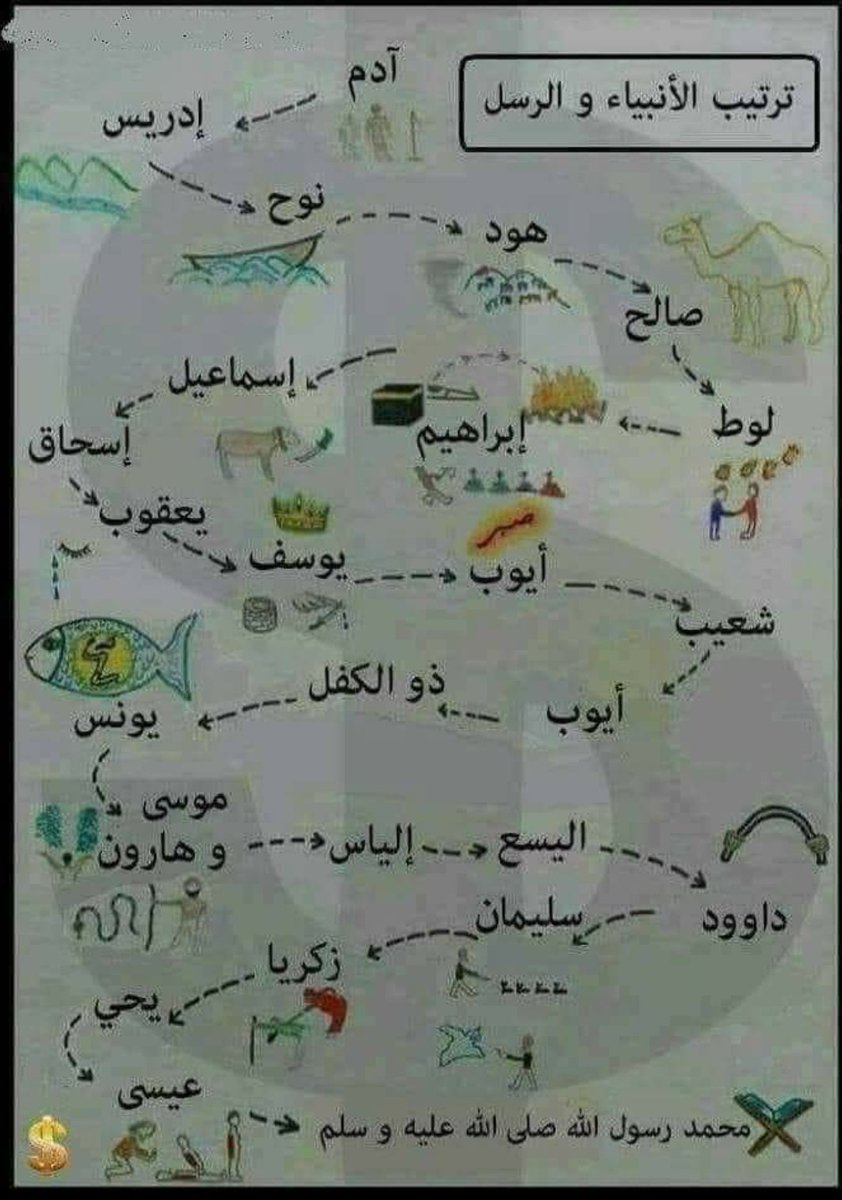 ترتيب الأنبياء و الرسل
آدم
إدريس
نوح
هود
صالح
لوط
إبراهيم
إسماعيل
إسحاق
يعقوب
يوسف
صبر
أيوب
شعيب
أيوب
ذو الكفل
يونس
موسى
و هارون
إلياس
اليسع
داوود
سليمان
زكريا
يحي
عيسى
محمد رسول الله صلى الله عليه و سلم
$